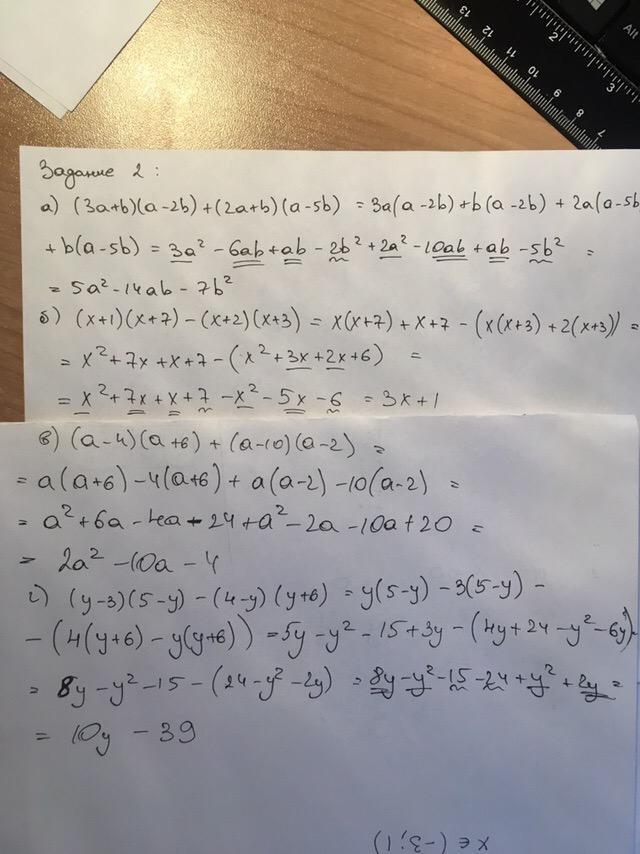 Задание 2 :
а) (3a+b)(a-2b)+(2a+b)(a-5b) = 3a(a-2b)+b(a-2b) + 2a(a-5b
+ b(a-5b) = 3a² - 6ab + ab - 2b² + 2a² - 10ab + ab - 5b² =
= 5a² - 14ab - 7b²
б) (x+1)(x+7) - (x+2)(x+3) = x(x+7) + x+7 - (x(x+3) + 2(x+3)) =
= x² + 7x + x + 7 - (x² + 3x + 2x + 6) =
= x² + 7x + x + 7 - x² - 5x - 6 = 3x + 1
в) (a-4)(a+6) + (a-10)(a-2) =
= a(a+6) - 4(a+6) + a(a-2) - 10(a-2) =
= a² + 6a - 4a - 24 + a² - 2a - 10a + 20 =
= 2a² - 10a - 4
г) (y-3)(5-y) - (4-y)(y+6) = y(5-y) - 3(5-y) -
- (4(y+6) - y(y+6)) = 5y - y² - 15 + 3y - (4y + 24 - y² - 6y) =
= 8y - y² - 15 - (24 - y² - 2y) = 8y - y² - 15 - 24 + y² + 2y =
= 10y - 39
x ∈ (-3; 1)
13
12
11
10
9
8
7
2
3
Alt